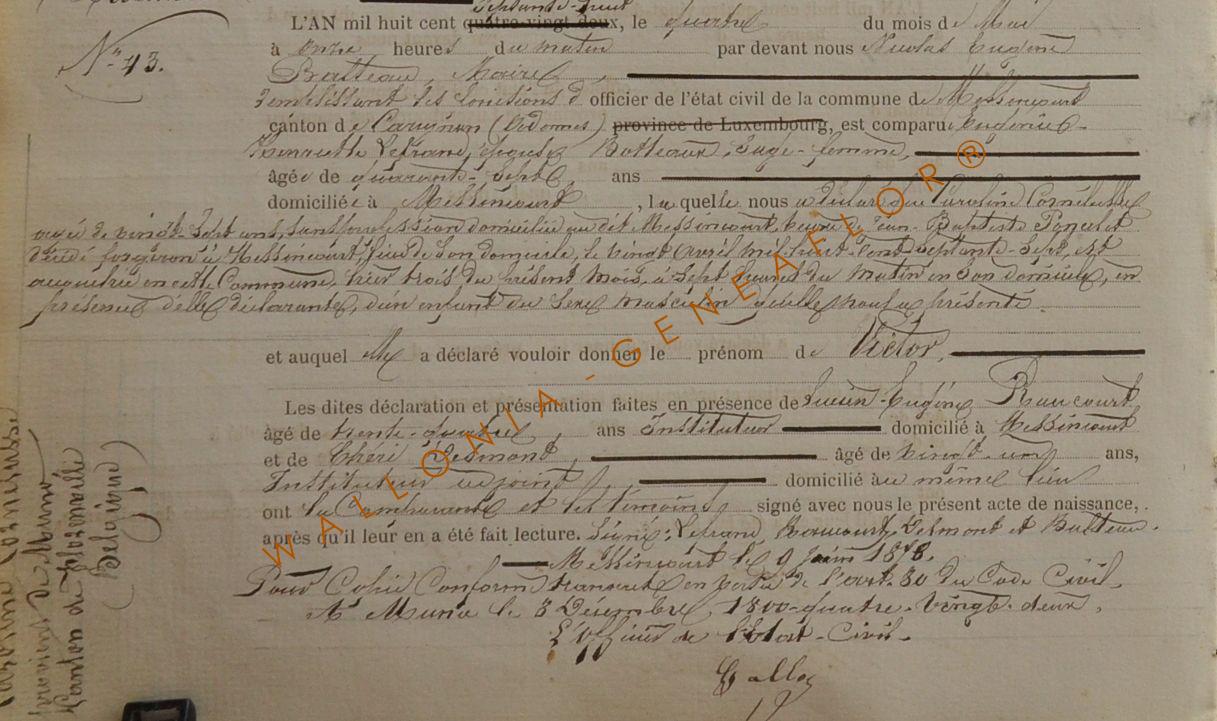 N° 43.
L'AN mil huit cent quatre-vingt deux, le quatre du mois de Mai
à onze heures du matin par devant nous Nicolas Eugène
Batteau, Maire,
remplissant les fonctions d'officier de l'état civil de la commune de Messincourt
canton de Carignan (Ardennes) province de Luxembourg, est comparu Eugénie
Henriette Lefranc, épouse Batteaux, Sage-femme,
âgée de quarante-sept ans
domiciliée à Messincourt, laquelle nous a déclaré que Caroline Cornélusse
agée de vingt sept ans, sans profession domiciliée au dit Messincourt, veuve Jean-Baptiste Poncelet
décédé forgeron à Messincourt, lieu de son domicile, le vingt Avril mil huit-cent-septante-sept, est
accouchée en cette Commune, hier trois du présent mois, à sept heures du matin en son domicile, en
présence d'elle déclarante, d'un enfant du sexe masculin qu'elle nous a présenté.
et auquel elle a déclaré vouloir donner le prénom de Victor,
Les dites déclaration et présentation faites en présence de Lucien-Eugène Raucourt
âgé de trente-quatre, ans Instituteur domicilié à Messincourt
et de Chéri Delmont, âgé de vingt-un ans,
Instituteur adjoint, domicilié au même lieu
ont la Comparante et les témoins signé avec nous le présent acte de naissance,
après qu'il leur en a été fait lecture. Signé: Lefranc, Raucourt, Delmont et Batteau.
Messincourt le 9 Juin 1878.
Pour Copie Conforme transcrite en vertu de l'art. 80 du Code Civil
A Muno le 3 Décembre 1800-quatre-vingt-deux.
L'Officier de l'Etat-Civil
provinet de Muno
Canton de Florenville
Belgique)
WALLONIA-GENEAFLOR®